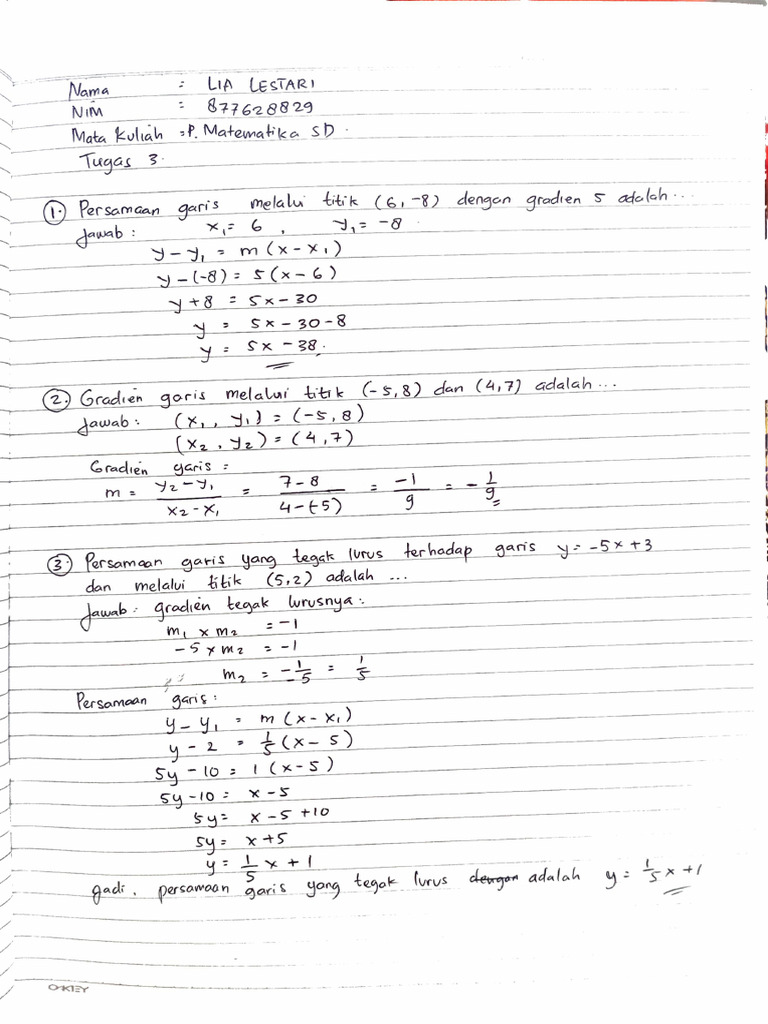 Nama : LIA LESTARI
NIM : 877628829
Mata Kuliah : P. Matematika SD.
Tugas 3.
1. Persamaan garis melalui titik (6,-8) dengan gradien 5 adalah...
Jawab : x₁ = 6 , y₁ = -8
y - y₁ = m (x - x₁)
y - (-8) = 5 (x - 6)
y + 8 = 5x - 30
y = 5x - 30 - 8
y = 5x - 38.
2. Gradien garis melalui titik (-5,8) dan (4,7) adalah...
Jawab : (x₁, y₁) = (-5,8)
(x₂, y₂) = (4,7)
Gradien garis :
m = y₂ - y₁ / x₂ - x₁ = 7 - 8 / 4 - (-5) = -1/9 = - 1/9
3. Persamaan garis yang tegak lurus terhadap garis y = -5x + 3
dan melalui titik (5,2) adalah ...
Jawab : gradien tegak lurusnya :
m₁ x m₂ = -1
-5 x m₂ = -1
m₂ = -1/-5 = 1/5
Persamaan garis :
y - y₁ = m (x - x₁)
y - 2 = 1/5 (x - 5)
5y - 10 = 1 (x - 5)
5y - 10 = x - 5
5y = x - 5 + 10
5y = x + 5
y = 1/5 x + 1
Jadi, persamaan garis yang tegak lurus dengan adalah y = 1/5 x + 1
OKEY